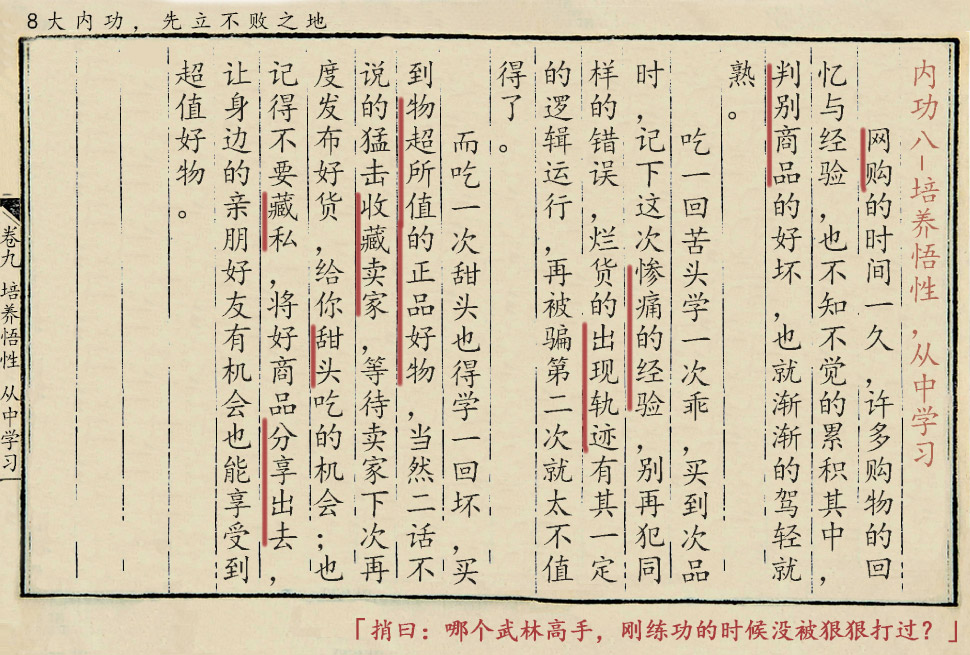 8大内功，先立不败之地
内功八—培养悟性，从中学习
网购的时间一久，许多购物的回
忆与经验，也不知不觉的累积其中，
判别商品的好坏，也就渐渐的驾轻就
熟。
吃一回苦头学一次乖，买到次品
时，记下这次惨痛的经验，别再犯同
样的错误，烂货的出现轨迹有其一定
的逻辑运行，再被骗第二次就太不值
得了。
而吃一次甜头也得学一回坏，买
到物超所值的正品好物，当然二话不
说的猛击收藏卖家，等待卖家下次再
度发布好货，给你甜头吃的机会；也
记得不要藏私，将好商品分享出去，
让身边的亲朋好友有机会也能享受到
超值好物。
卷九 培养悟性 从中学习
「捎曰：哪个武林高手，刚练功的时候没被狠狠打过？」